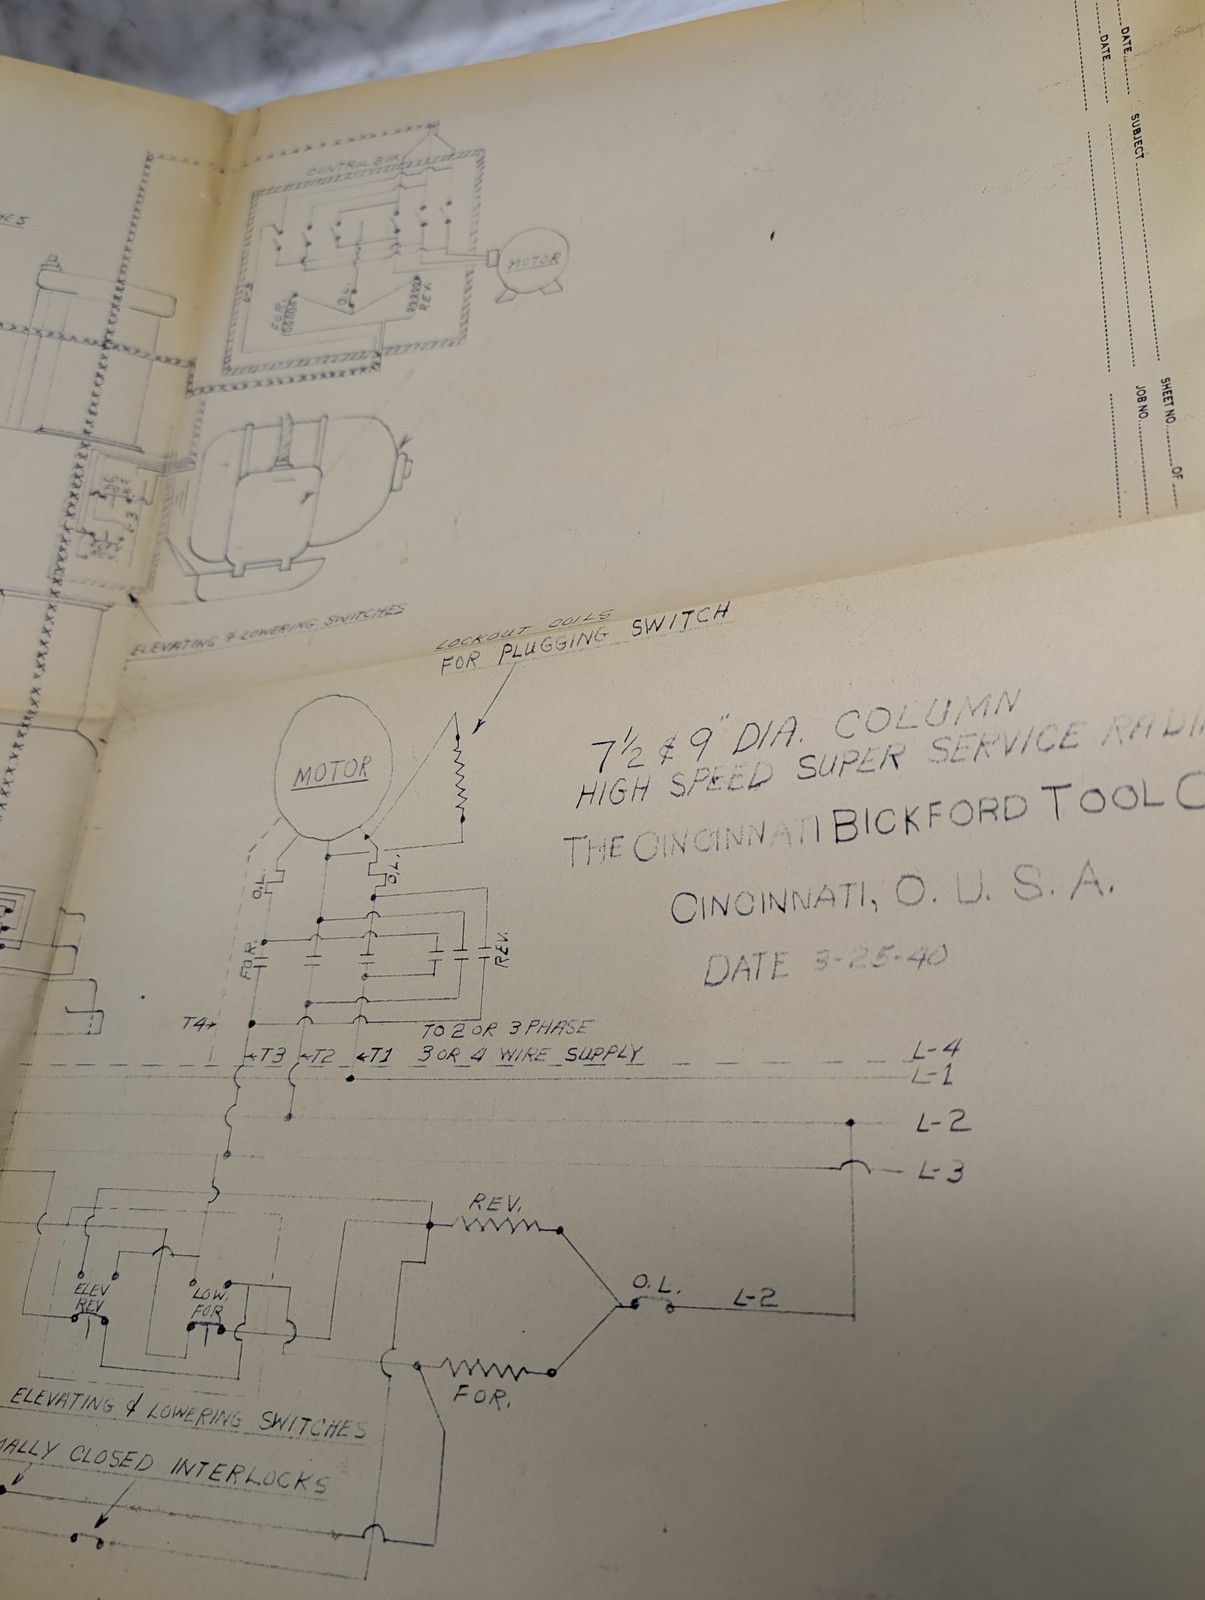 DATE
DATE
SUBJECT
SHEET NO. OF
JOB NO.
CONTROL BOX
MOTOR
FOR.
O.L.
REV.
ELEVATING & LOWERING SWITCHES
LOCKOUT COILS
FOR PLUGGING SWITCH
MOTOR
7½ & 9" DIA. COLUMN
HIGH SPEED SUPER SERVICE RADI
THE CINCINNATI BICKFORD TOOL C
CINCINNATI, O. U. S. A.
DATE 3-25-40
O.L.
O.L.
FOR.
REV.
T4
T3
T2
T1
TO 2 OR 3 PHASE
3 OR 4 WIRE SUPPLY
L-4
L-1
L-2
L-3
REV.
ELEV
REV
LOW.
FOR
O.L.
L-2
FOR.
ELEVATING & LOWERING SWITCHES
MALLY CLOSED INTERLOCKS